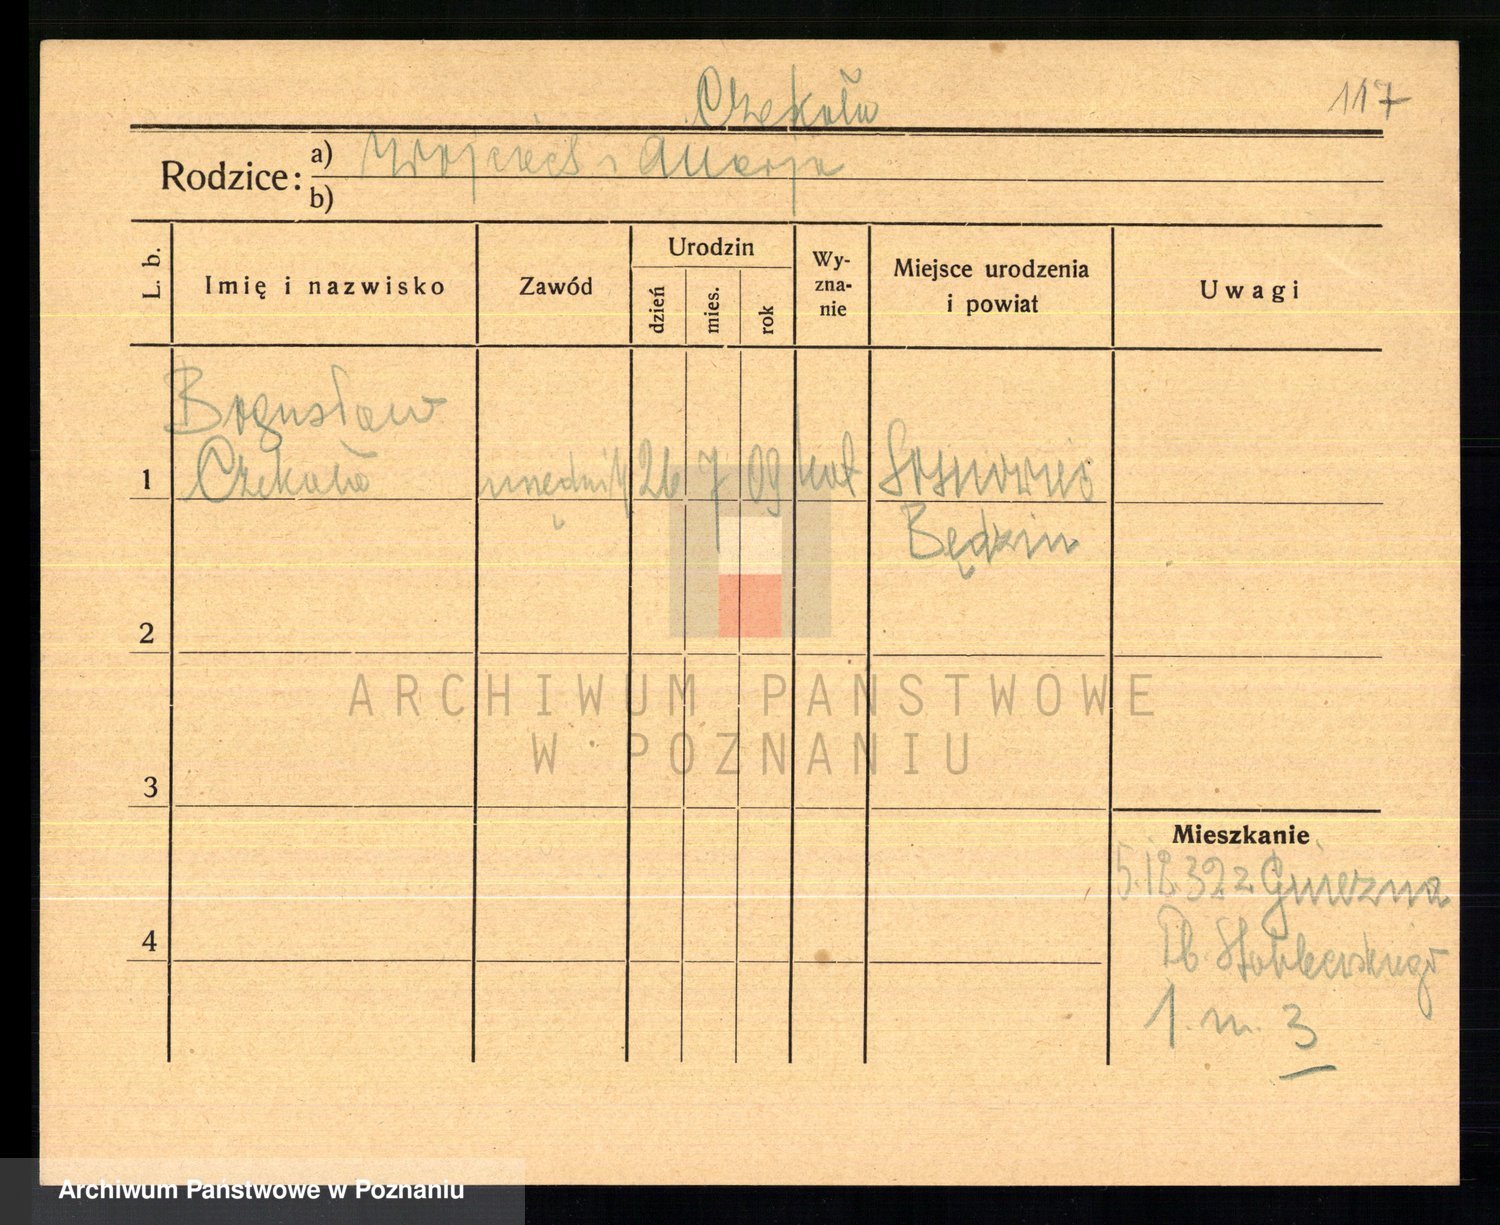 Czekała
117
Rodzice: a) Wojciech i Marja
b)
L. b.
Imię i nazwisko
Zawód
Urodzin
dzień
mies.
rok
Wy-
zna-
nie
Miejsce urodzenia
i powiat
Uwagi
Bogusław
1 Czekała urzędnik 26 7 09 kat Sosnowiec
Będzin
2
ARCHIWUM PAŃSTWOWE
W POZNANIU
3
Mieszkanie
5.12.32 z Gniezna
4
Pl. Stablewskiego
1 m. 3
Archiwum Państwowe w Poznaniu